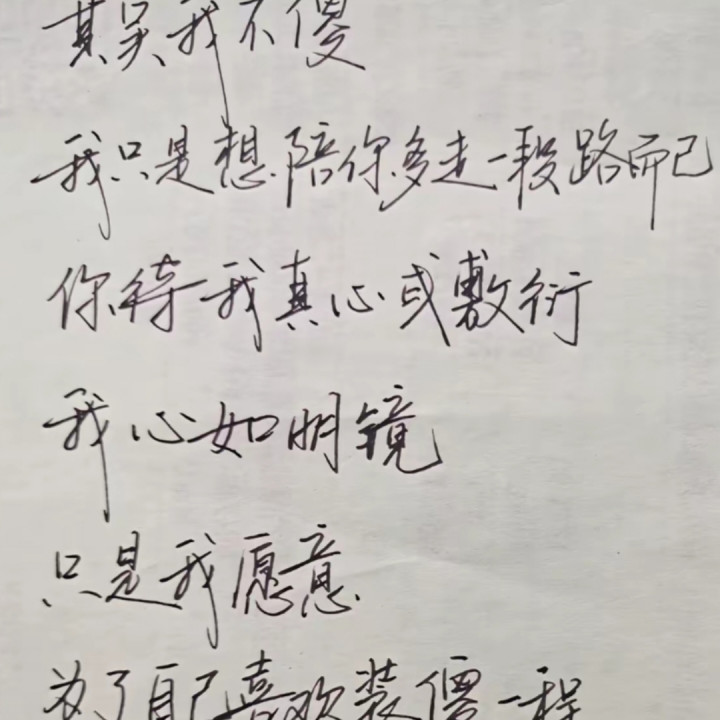 其实我不傻
我只是想陪你多走一段路而己
你待我真心或敷衍
我心如明镜
只是我愿意
为了自己喜欢装傻一程